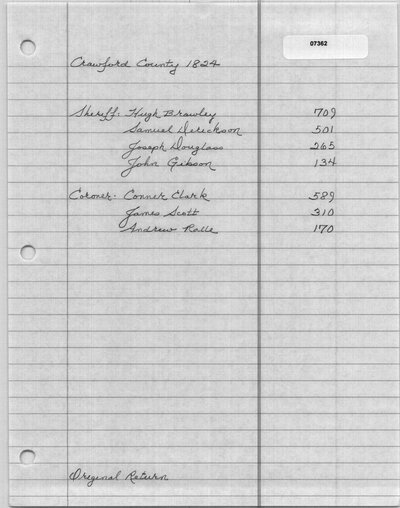 07362
Crawford County 1824
Sheriff: Hugh Brawley 709
Samuel Derickson 501
Joseph Douglass 265
John Gibson 134
Coroner- Conner Clark 589
James Scott 310
Andrew 170
Original Return